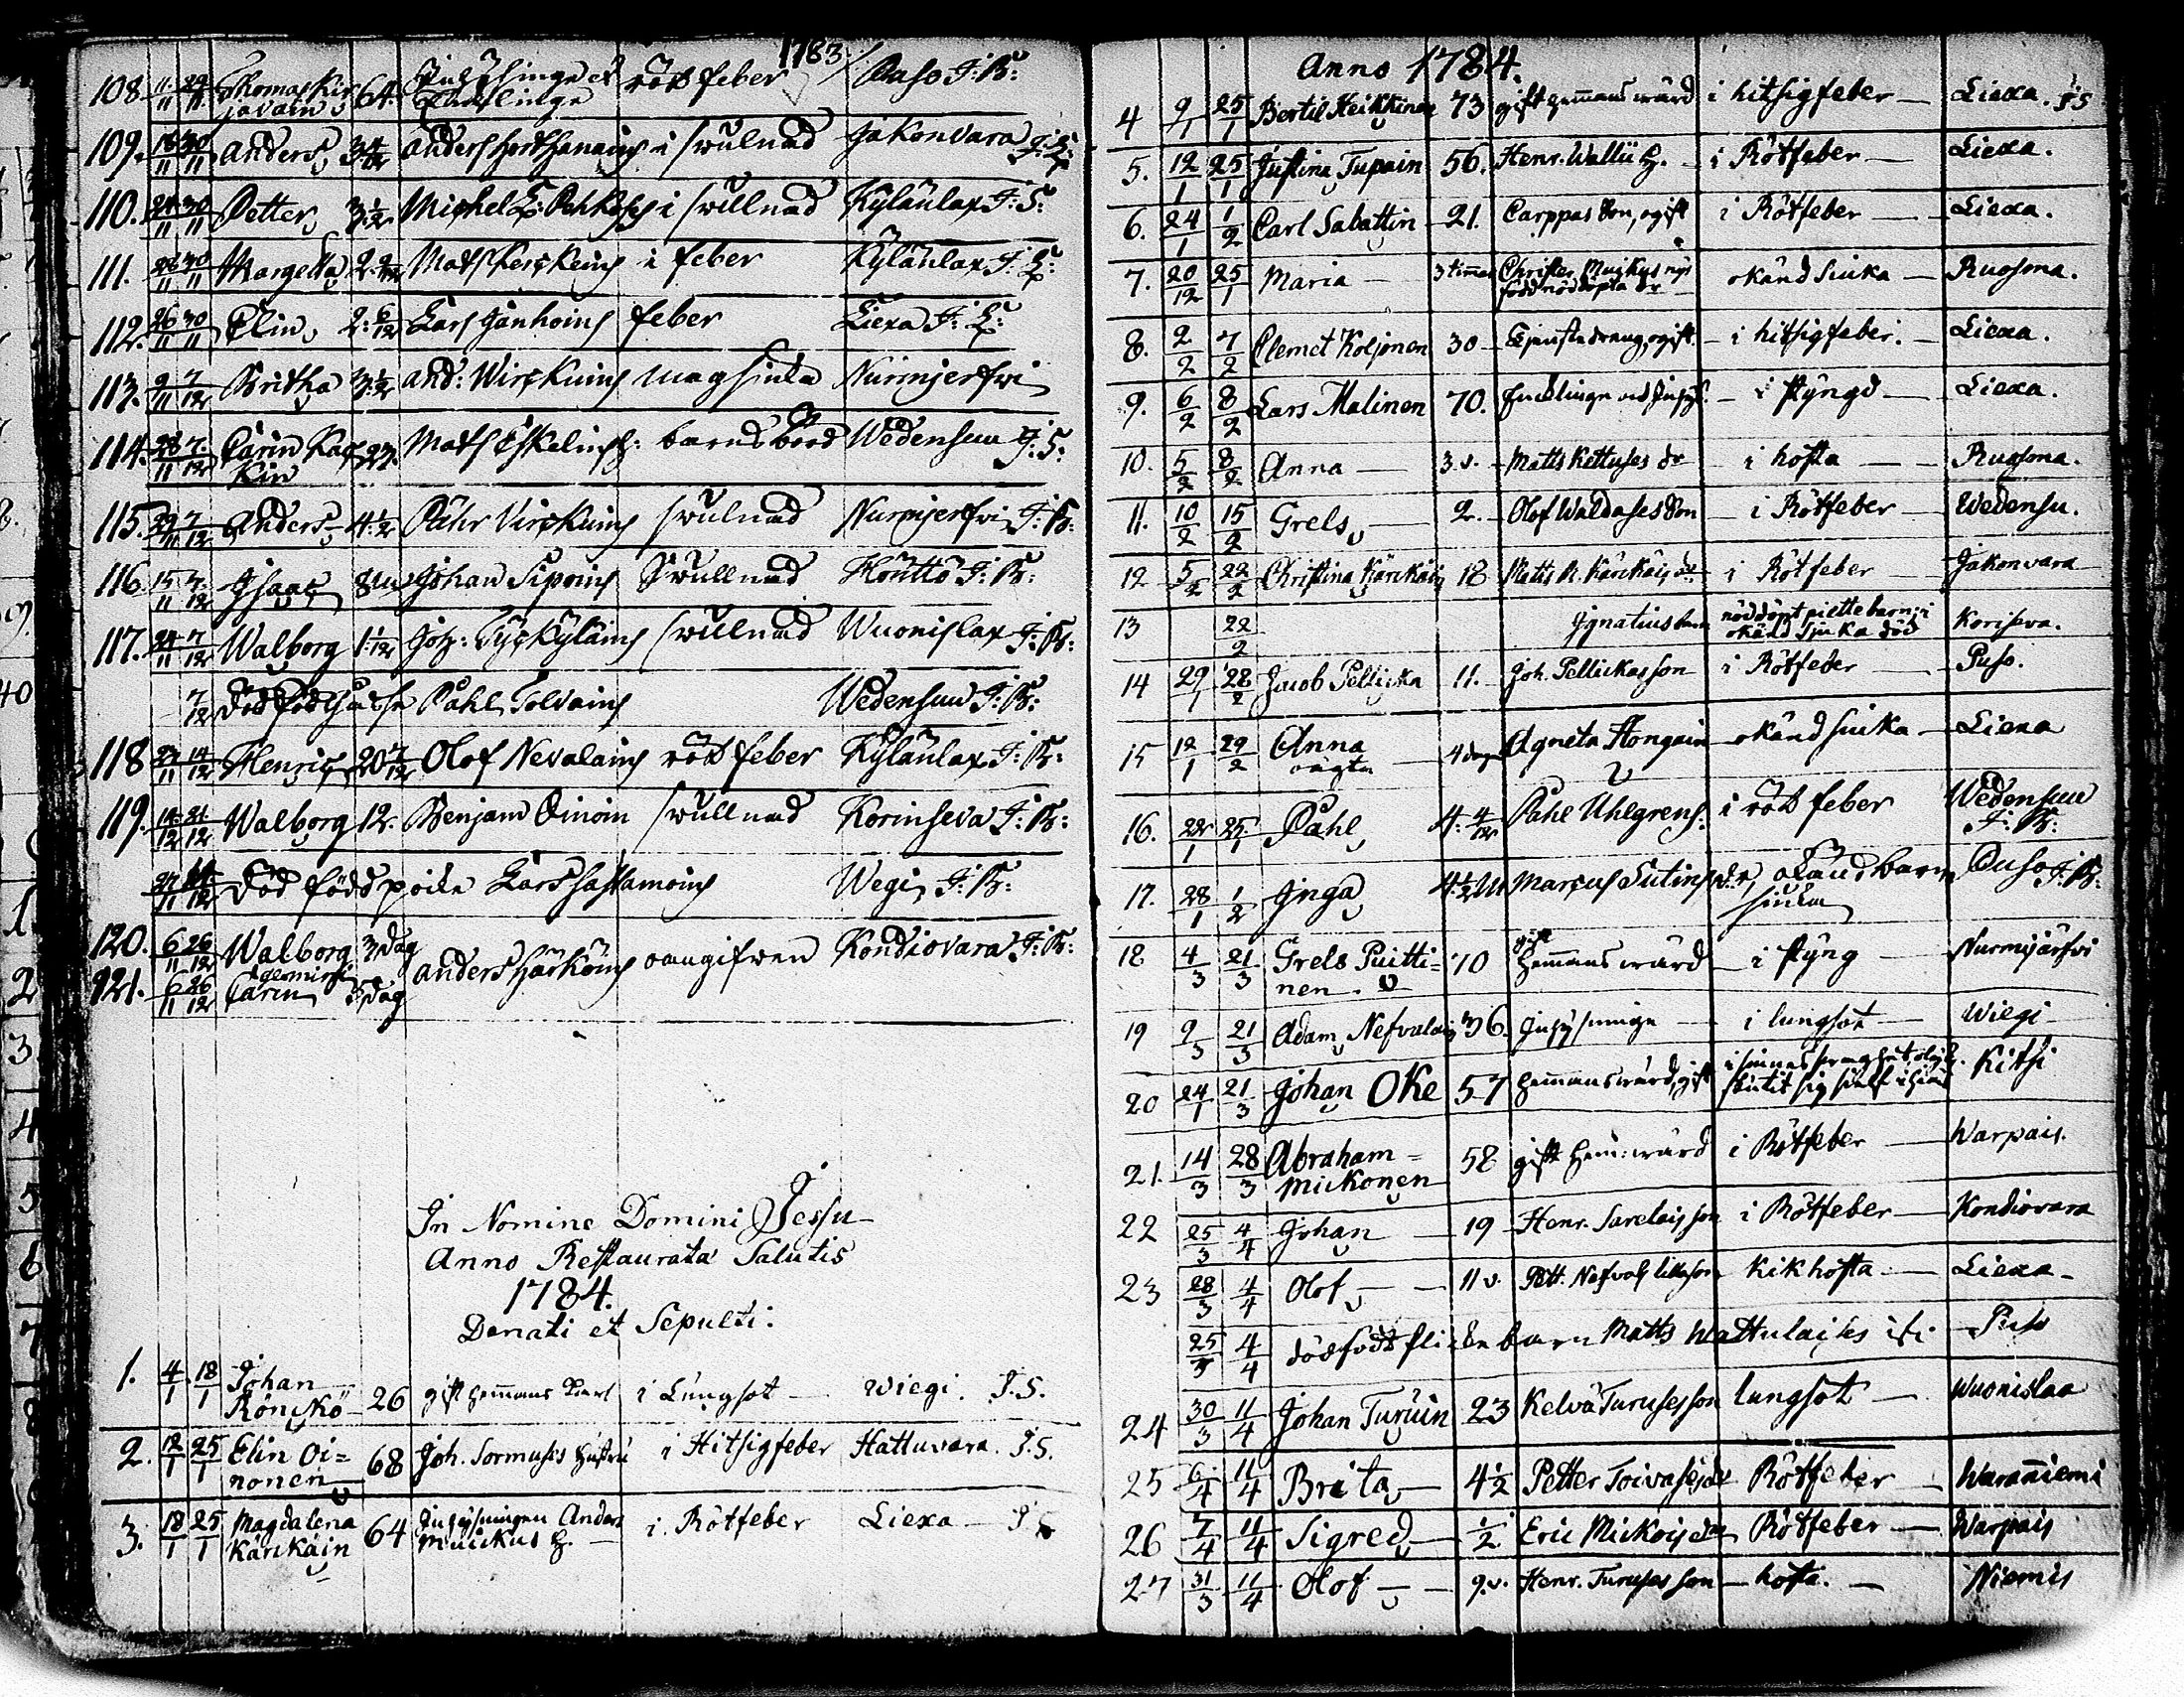 1783
108. 11/11 Thomas Kir 64. röd feber Puso J: K:
javain
109. 16/11 30/11 Anders 3 4/12 Anders i swulnad Jakonvara
110. 24/11 30/11 Petter 3 1/2 Michel i swullnad Kyläulax J: S:
111. 26/11 30/11 Margetta 2 Mats i feber Kyläulax
112. 26/11 30/11 Elin 2: 6/12 Lars feber Liexa
113. 9/11 7/12 Britha 3 1/2 And: Wirskuins magsiuka Nurmjerfwi
114. 28/11 7/12 Carin 27. Mats Eskelins h: barnsbörd Wedensuu J: S:
kin
115. 29/11 7/12 Anders 4 1/2 Påhr Virskuins swulnad Nurmjerfwi J: K:
116 15/11 7/12 Isaac Johan Sipoins Swullnad Höntto J: K:
117. 24/11 7/12 Walborg 1 1/12 swullnad Wuonislax J: K:
7/12 Påhl Tolvains Wedensuu J: K:
118 23/11 14/12 Henric 20 Olof Nevalains röd feber Kyläulax J: K:
119. 14/12 21/12 Walborg 12. Benjam Oinoin swullnad Korinseva J: K:
Död född poike Lars Wegi J: K:
120. 6/11 26/12 Walborg 3 dag Anders Härköins oangifwen Kondiovara J: K:
121. 6/11 26/12 Carin dag
In Nomine Domini Jessu
Anno Restaurata Salutis
1784.
Denati et Sepulti:
1. 4/1 18/1 Johan
Rönckö 26 gift hemans karl i Lungsot Wiegi. J. S.
2. 12/1 25/1 Elin Oi=
nonen 68 Joh. Sormuses hustru i Hitsigfeber Hattuvara. J. S.
3. 18/1 25/1 Magdalena
Kärckäin 64 Inhysningen Anders
Muickus h. i Rötfeber Liexa
Anno 1784.
4 9/1 25/1 Bertil Heikkinen 73 gift hemans wärd i hitsigfeber Liexa. J S
5. 12/1 25/1 Justina Tupain 56. Henr. Wallii h. i Rötfeber Liexa.
6. 24/1 1/2 Carl Sabattin 21. Carppas son, ogift i Rötfeber Liexa.
7. 20/12 25/1 Maria 3 timmar Christer Muikus nys
född nöddöpta dr okänd siuka Ruosma.
8. 2/2 7/2 Clemet Koljonen 30 Tjenstedräng, ogift i hitsigfeber. Liexa.
9. 6/2 8/2 Lars Malinen 70. i styngd Liexa.
10. 5/2 8/2 Anna 3. v. Matts Kettuses dr i hosta Ruosma.
11. 10/2 15/2 Grels 2. Olof Waldases son i Rötfeber Wedensu.
12 5/2 22/2 Christina Kärckäin 18 Matts K. Kärckäis dr i Rötfeber Jakonvara
13 22/2 Ignatius barn nöddöpt piltebarn: i
okänd Sjuka död Koriseva.
14 29/1 28/2 Jacob Pellicka 11. Joh. Pellickas son i Rötfeber Puso.
15 12/1 29/2 Anna
oägta 4 dagar Agneta Hongain okänd siuka Liexa
16. 22/1 25/1 Påhl 4. 4/12 Påhl Uhlgrens. i röd feber Wedensuu
J: K:
17. 28/1 1/2 Inga 4 1/2 M Marcus Sutins dr okänd barn Puso J: K:
siuka
18 4/3 21/3 Grels Puitti=
nen. 70 gift
hemans wärd i styng Nurmijärfvi
19 9/3 21/3 Adam Nefvalain 36. Inhysninge i lungsot Wiegi
20 24/1 21/3 Johan Oke 57 hemans wärd, gift i sinnes
skutit sig sielf Kitsi
21. 14/3 28/3 Abraham=
Mickonen 58 gift hem: wärd i Rötfeber Warpais.
22 25/3 4/4 Johan 19 Henr. Sarelais son i Rötfeber Kondiovara
23 28/3 4/4 Olof 11 v. Pett. Nefvals lilla son Kikhosta Liexa
25/3 4/4 dödfödt flicke barn Matts Wattulaises Puso
24 30/3 11/4 Johan Turuin 23 Kelvä Turuses son lungsot Wuonislax
25 6/4 11/4 Brita 4 1/2 Petter Toivases dr Rötfeber Warańiemi
26 7/4 11/4 Sigred 1/2 Eric Mickois dr Rötfeber Warpais
27 31/3 11/4 Olof 9. v. Henr. Turuses son hosta. Niemis